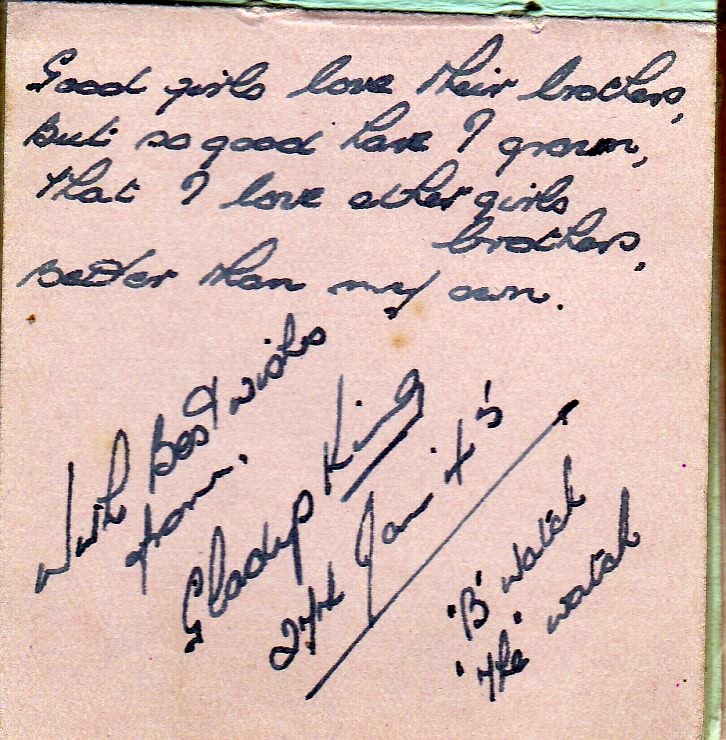 Good girls love their brothers,
But so good have I grown,
That I love other girls
brothers,
Better than my own.
With Best wishes
from,
Gladys King
27th Jan '45
'B' Watch
'The' watch